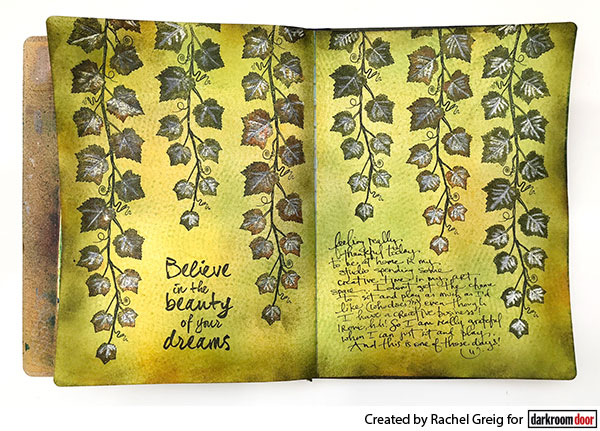 Believe
in the
beauty
of your
dreams
feeling really
thankful today.
to be at home in my
studio spending some
creative time in my art
space. I don't get the chance
to sit and play as much as I'd
like (who does?!) even though
I have a creative business!
Ironic, huh! So I am really grateful
when I can just sit and play.
And this is one of those days!
Created by Rachel Greig for darkroomdoor